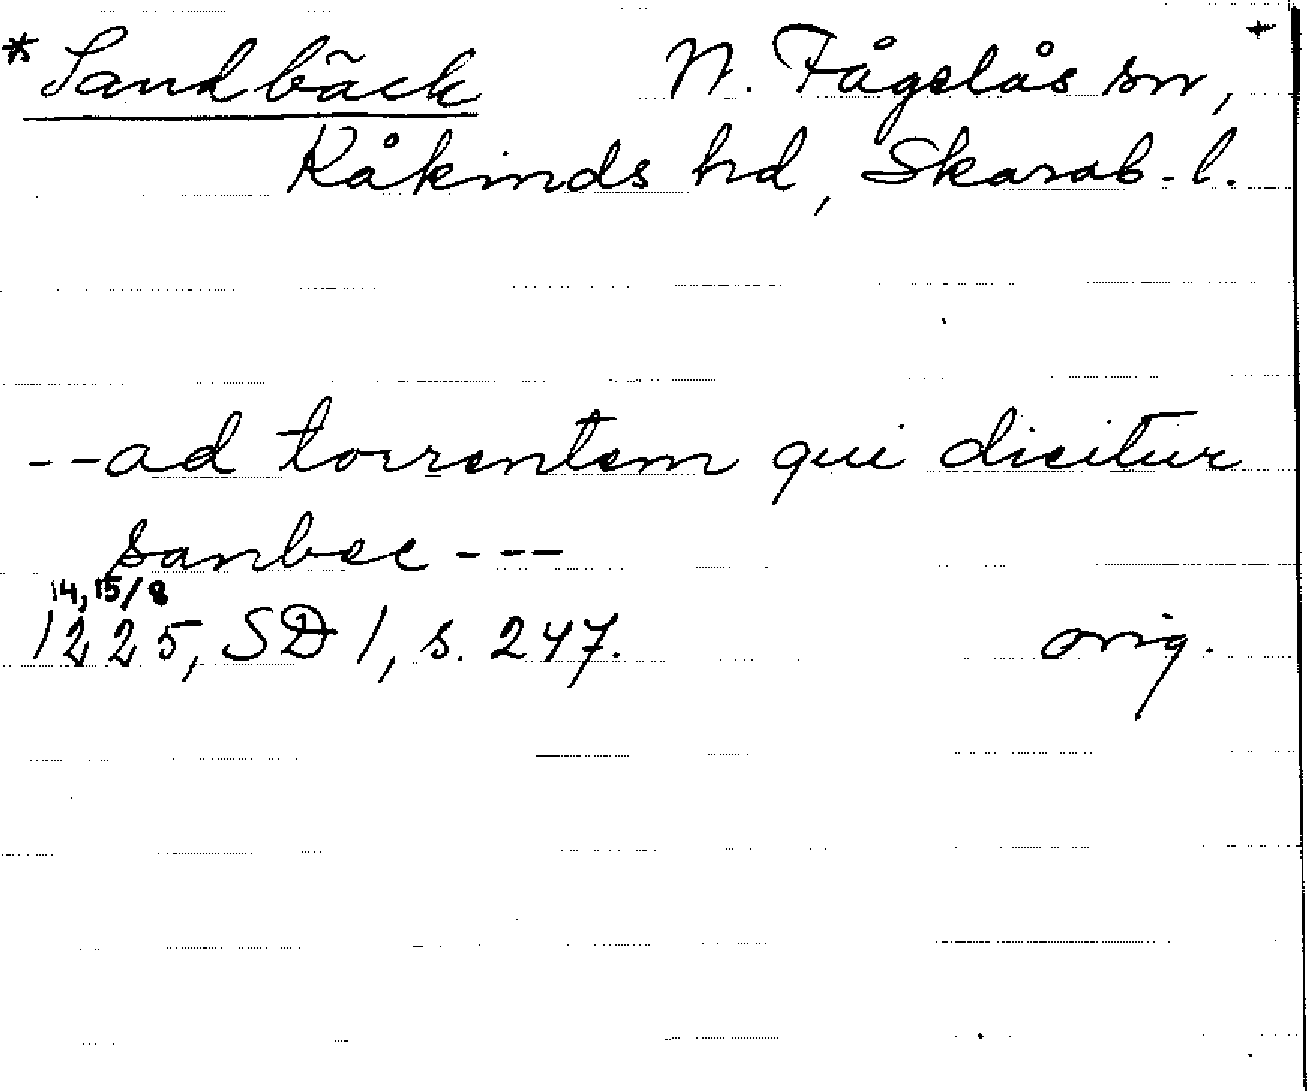 * Sandbäck N. Fågelås sn, +
Kåkinds hd, Skarab. l.
--ad torrentem qui dicitur
sanbec ---
14, 15/8
1225, SD 1, s. 247. orig.